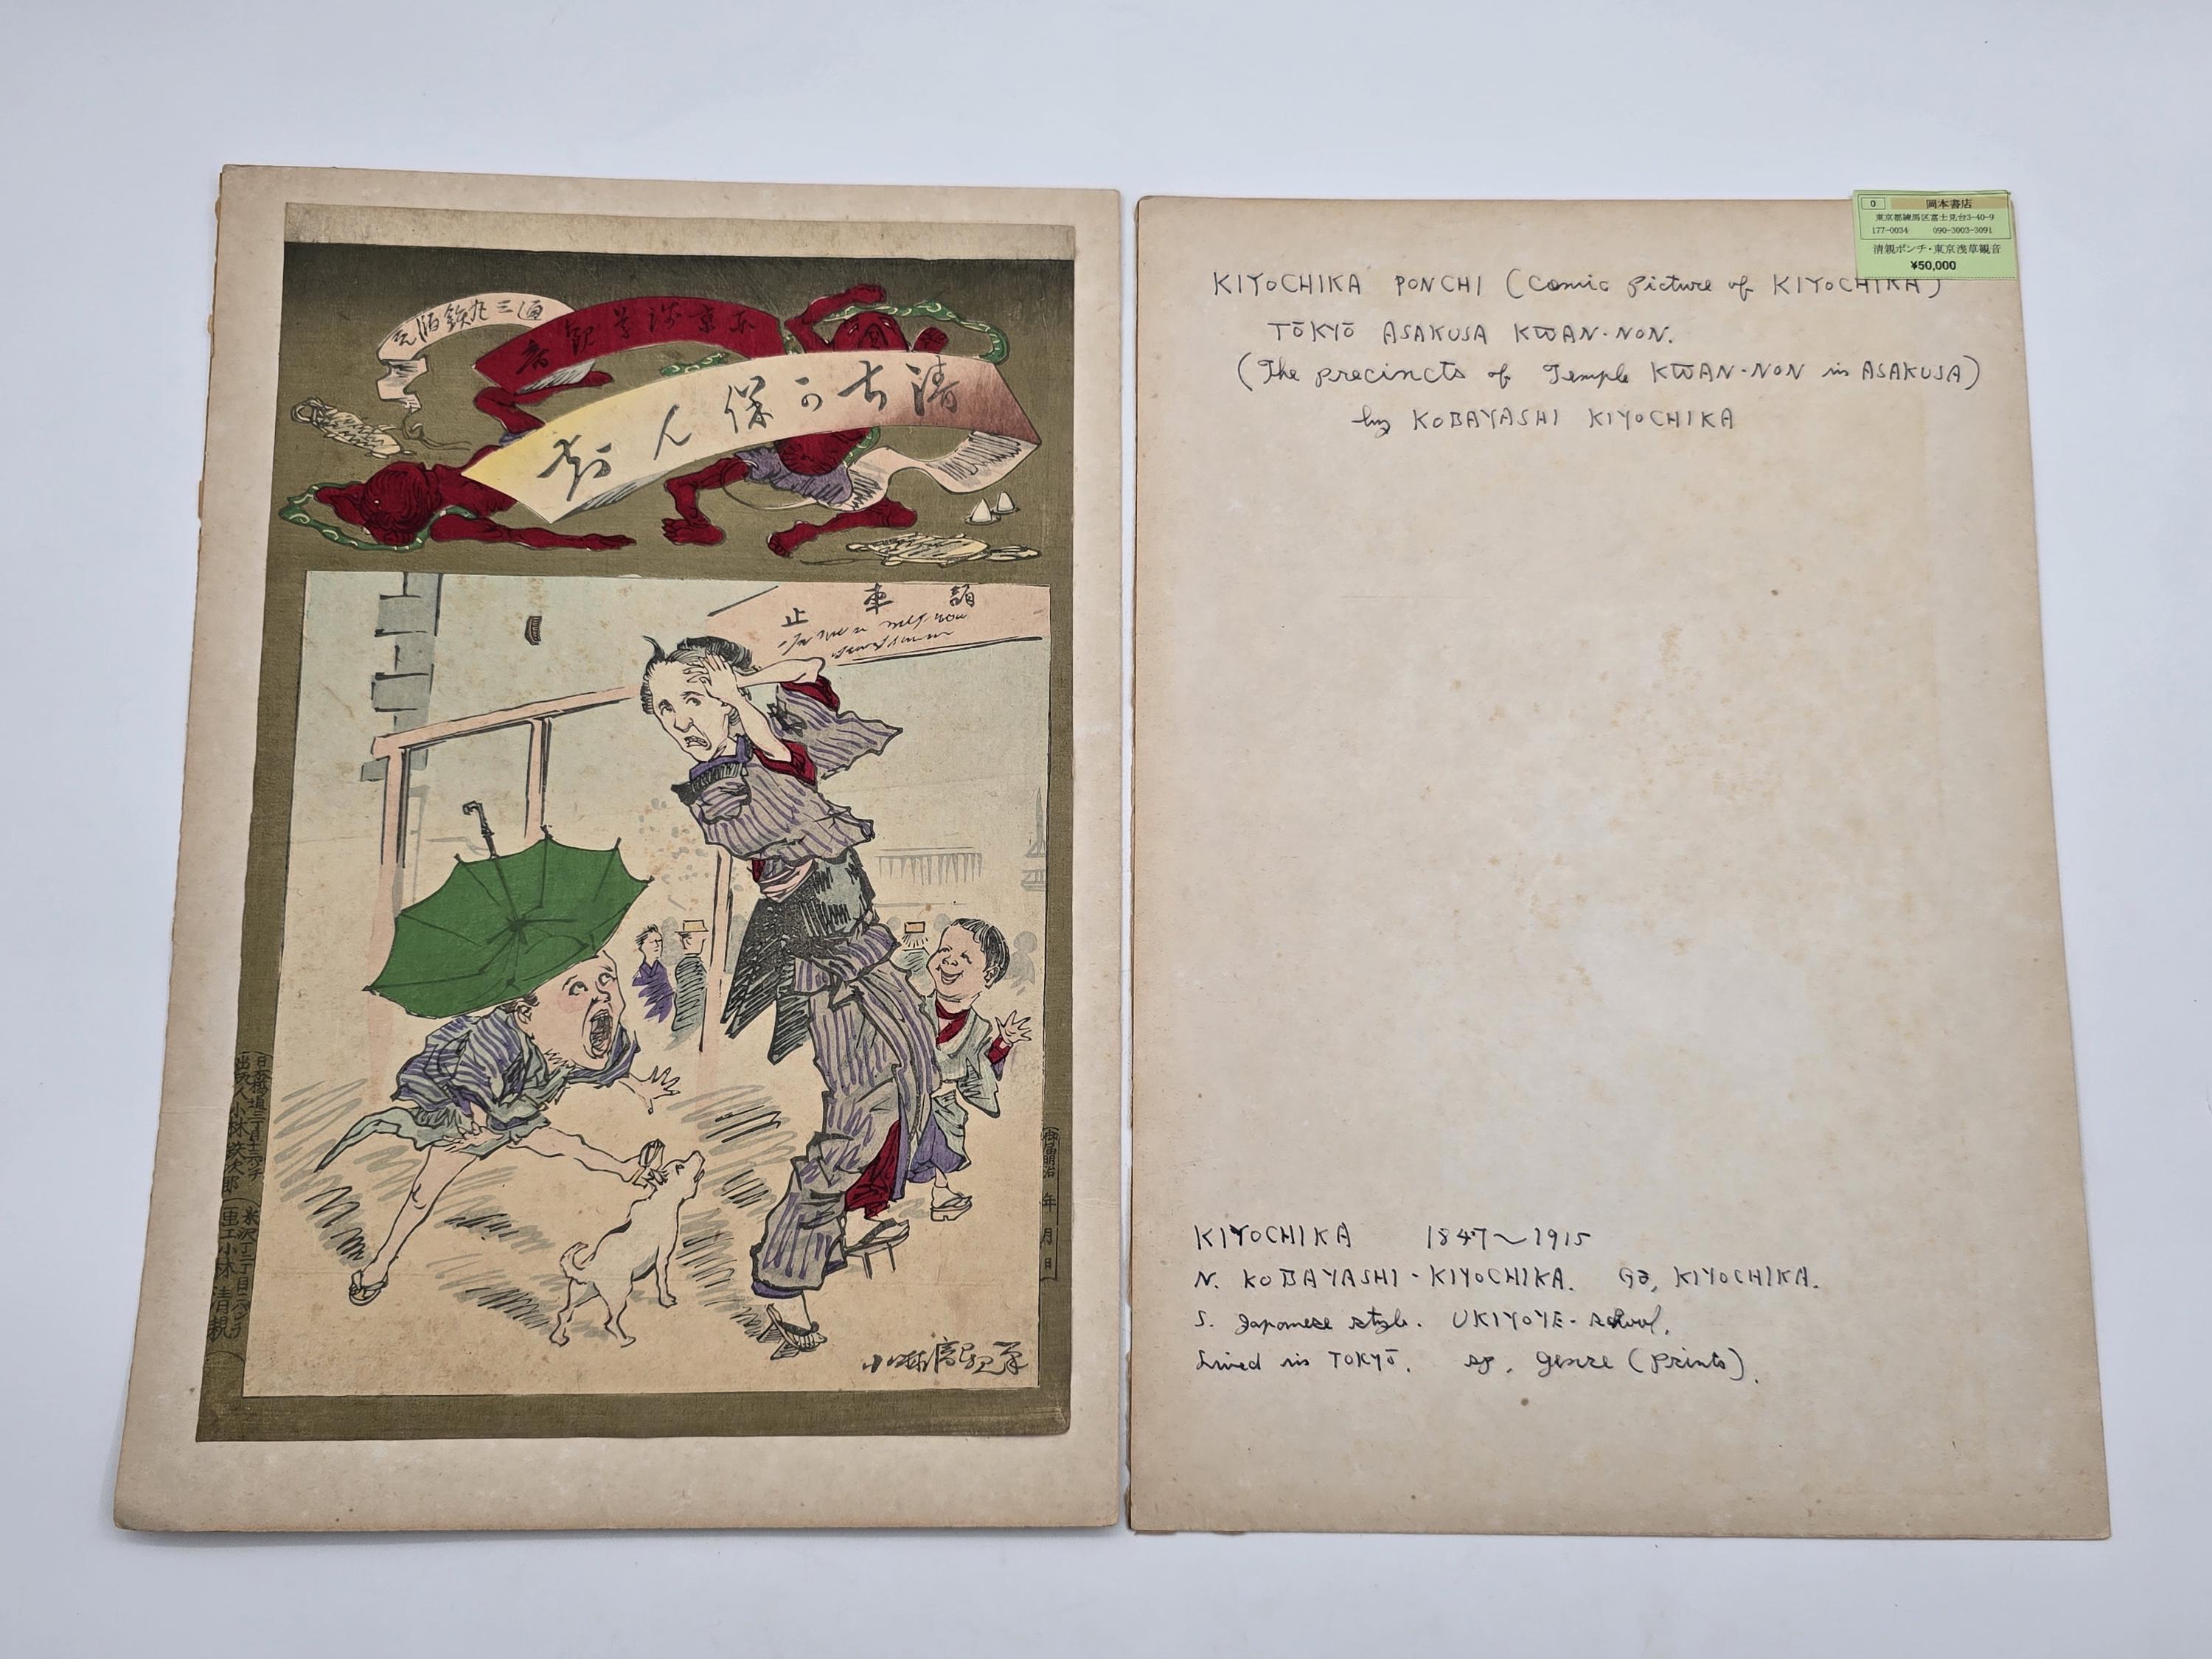 通三丸鉄版元
東京浅草観音
清親放痴
諸車止
小林清親筆
日本橋通三丁目十三バンチ
出版人小林鉄次郎
米沢丁二丁目六バンチ
画工小林清親
御届明治 年 月 日
0 岡本書店
東京都練馬区富士見台3-40-9
177-0034 090-3003-3091
清親ポンチ・東京浅草観音
¥50,000
KIYOCHIKA PONCHI (Comic picture of KIYOCHIKA)
TŌKYŌ ASAKUSA KWAN-NON.
(The precincts of Temple KWAN-NON in ASAKUSA)
by KOBAYASHI KIYOCHIKA
KIYOCHIKA 1847～1915
N. KOBAYASHI-KIYOCHIKA. Gō, KIYOCHIKA.
S. Japanese style. UKIYOYE-school.
Lived in TOKYŌ. sp. genre (prints).